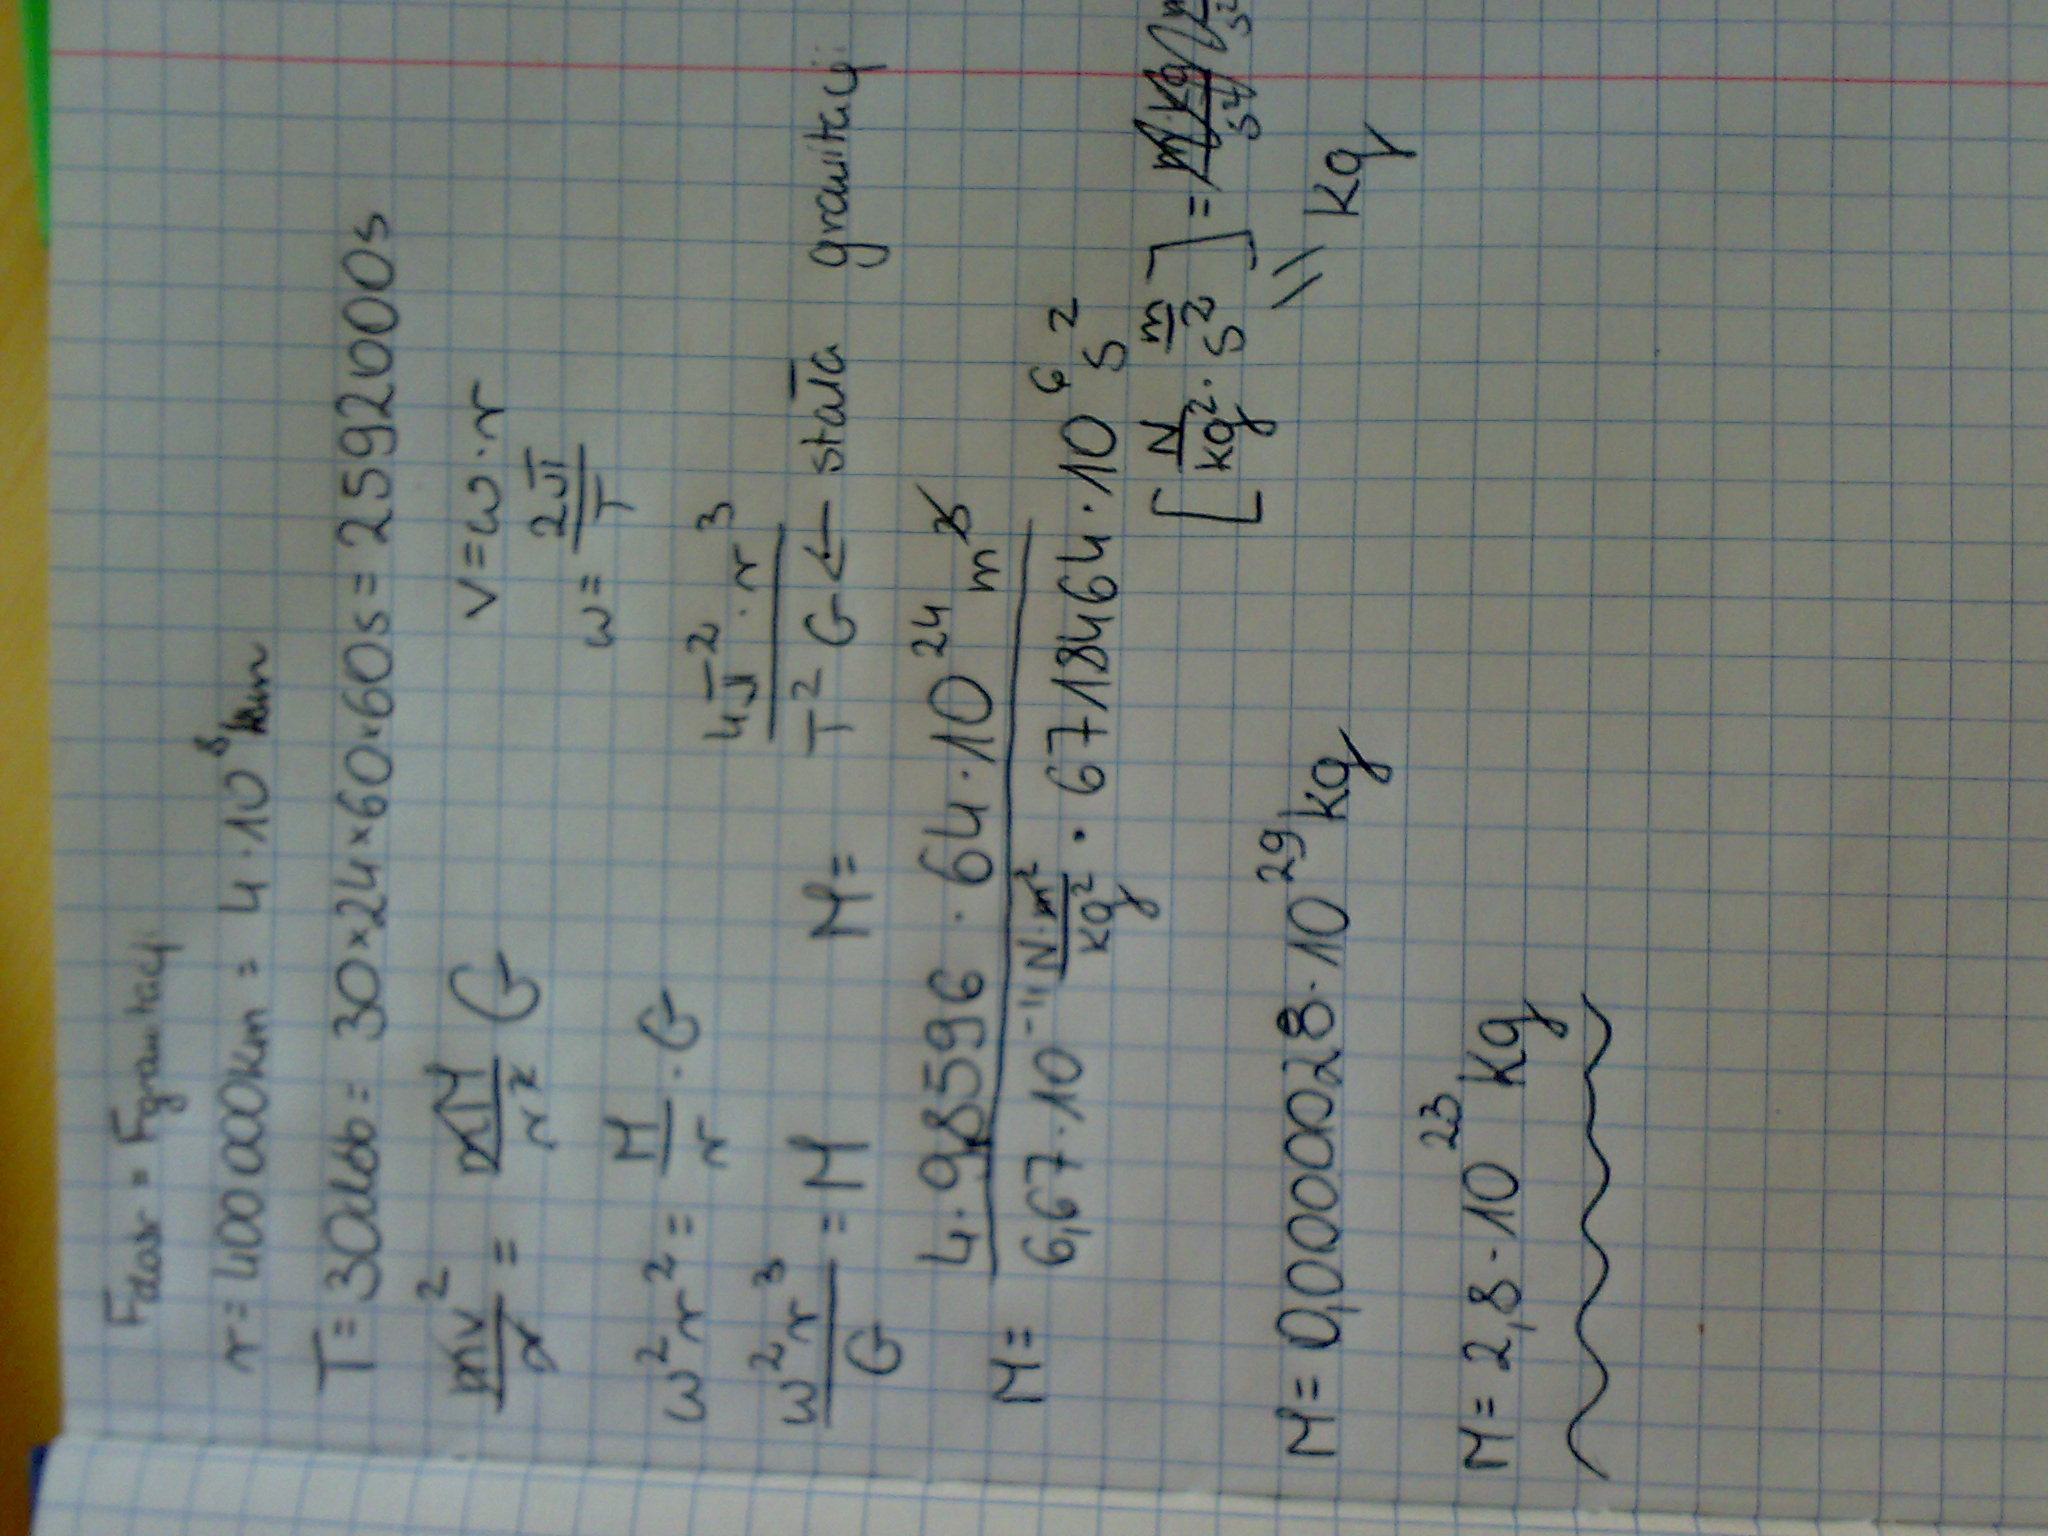 Fdos = Fgrawitacji
r = 400 000km = 4 · 10⁸ m
T = 30dób = 30×24×60×60s = 2592000s
mv²/r = mM/r² G v = ω · r
ω = 2π/T
ω²r² = M/r · G
ω²r³/G = M M = 4π² · r³/T² G ← stała grawitacji
M = 4 · 9,8596 · 64 · 10²⁴ m³/6,67 · 10⁻¹¹ N·m²/kg² · 6718464 · 10⁶ s²
[N/kg² · s² m] =
= kg
M = 0,0000028 · 10²⁹ kg
M = 2,8 · 10²³ kg